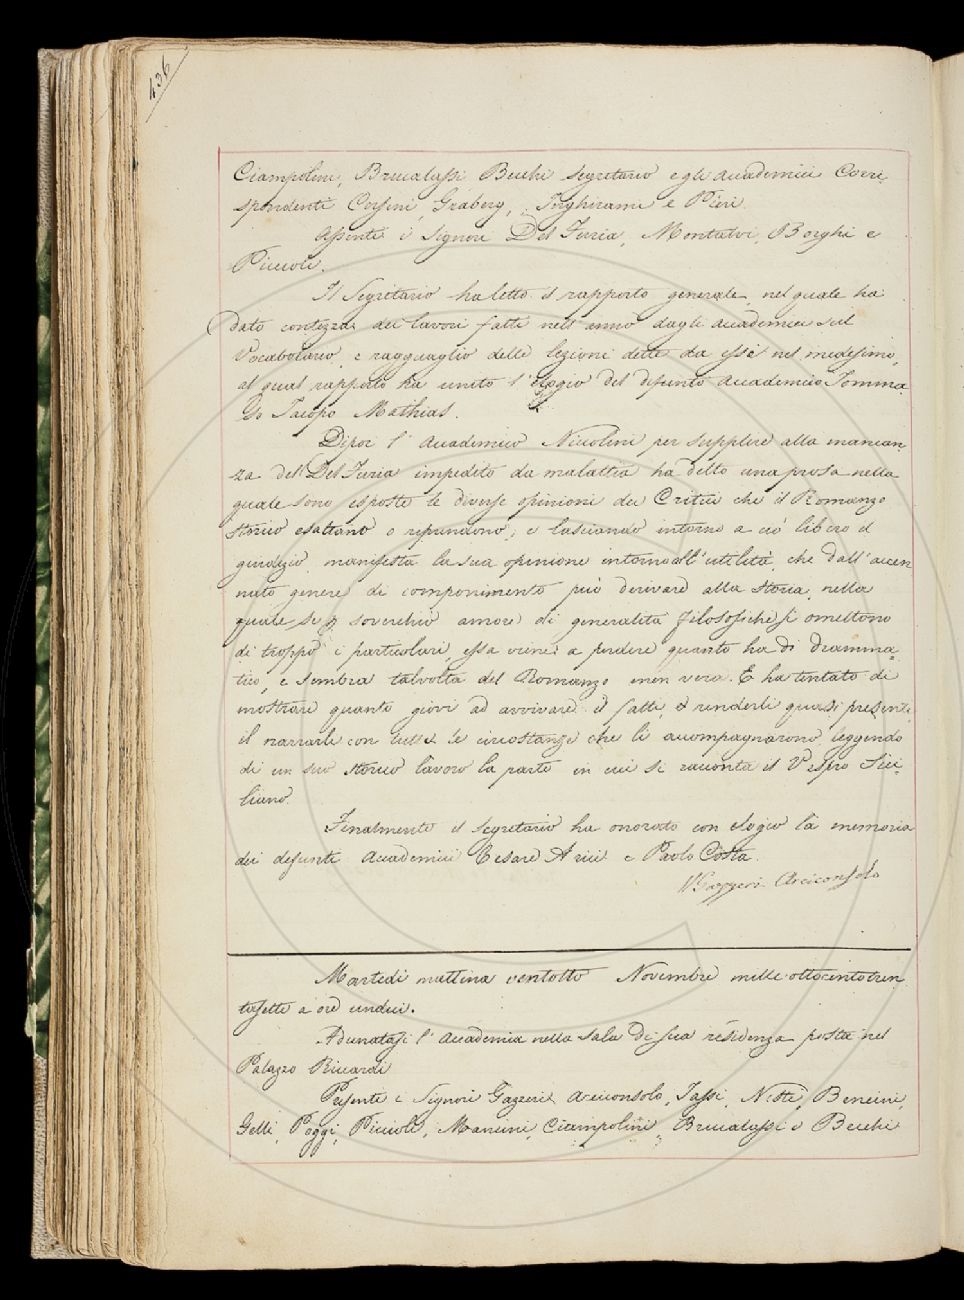 436
Ciampolini, Brucalassi Becchi Segretario e gli Accademici Corri-
spondenti Corsini, Graberg, Inghirami e Pieri.
Assenti i Signori Del Furia, Montalvi, Borghi e
Piccoli.
Il Segretario ha letto il rapporto generale, nel quale ha
dato contezza dei lavori fatti nell'anno dagli Accademici sul
Vocabolario, e ragguaglio delle lezioni dette da essi nel medesimo,
al qual rapporto ha unito l'elogio del defunto Accademico Tomma-
so Jacopo Mathias.
Dipoi l'Accademico Niccolini per supplire alla mancan-
za del Del Furia impedito da malattia ha detto una prosa nella
quale sono esposte le diverse opinioni dei Critici che il Romanzo
storico esaltano o riprendono; e lasciando intorno a ciò libero il
giudizio, manifesta la sua opinione intorno all'utilità, che dall'accen
nato genere di componimento può derivare alla storia, nella
quale se p soverchio amore di generalità filosofiche si omettono
di troppo i particolari, essa viene a perdere quanto ha di dramma-
tico, e sembra talvolta del Romanzo men vera. E ha tentato di
mostrare quanto giovi ad avvivare i fatti, e renderli quasi presenti,
il narrarli con tutte le circostanze che li accompagnarono, leggendo
di un suo storico lavoro la parte in cui si racconta il Vespro Sici-
liano.
Finalmente il Segretario ha onorato con elogio la memoria
dei defunti Accademici Cesare Arici e Paolo Costa.
Gazzeri Arciconsolo
Martedì mattina ventotto Novembre mille ottocentotren
tasette a ore undici.
Adunatasi l'Accademia nella sala di sua residenza posta nel
Palazzo Riccardi
Presenti i Signori Gazzeri Arciconsolo, Tassi, Nesti, Bencini,
Gelli, Poggi, Piccioli, Mancini, Ciampolini, Brucalassi e Becchi